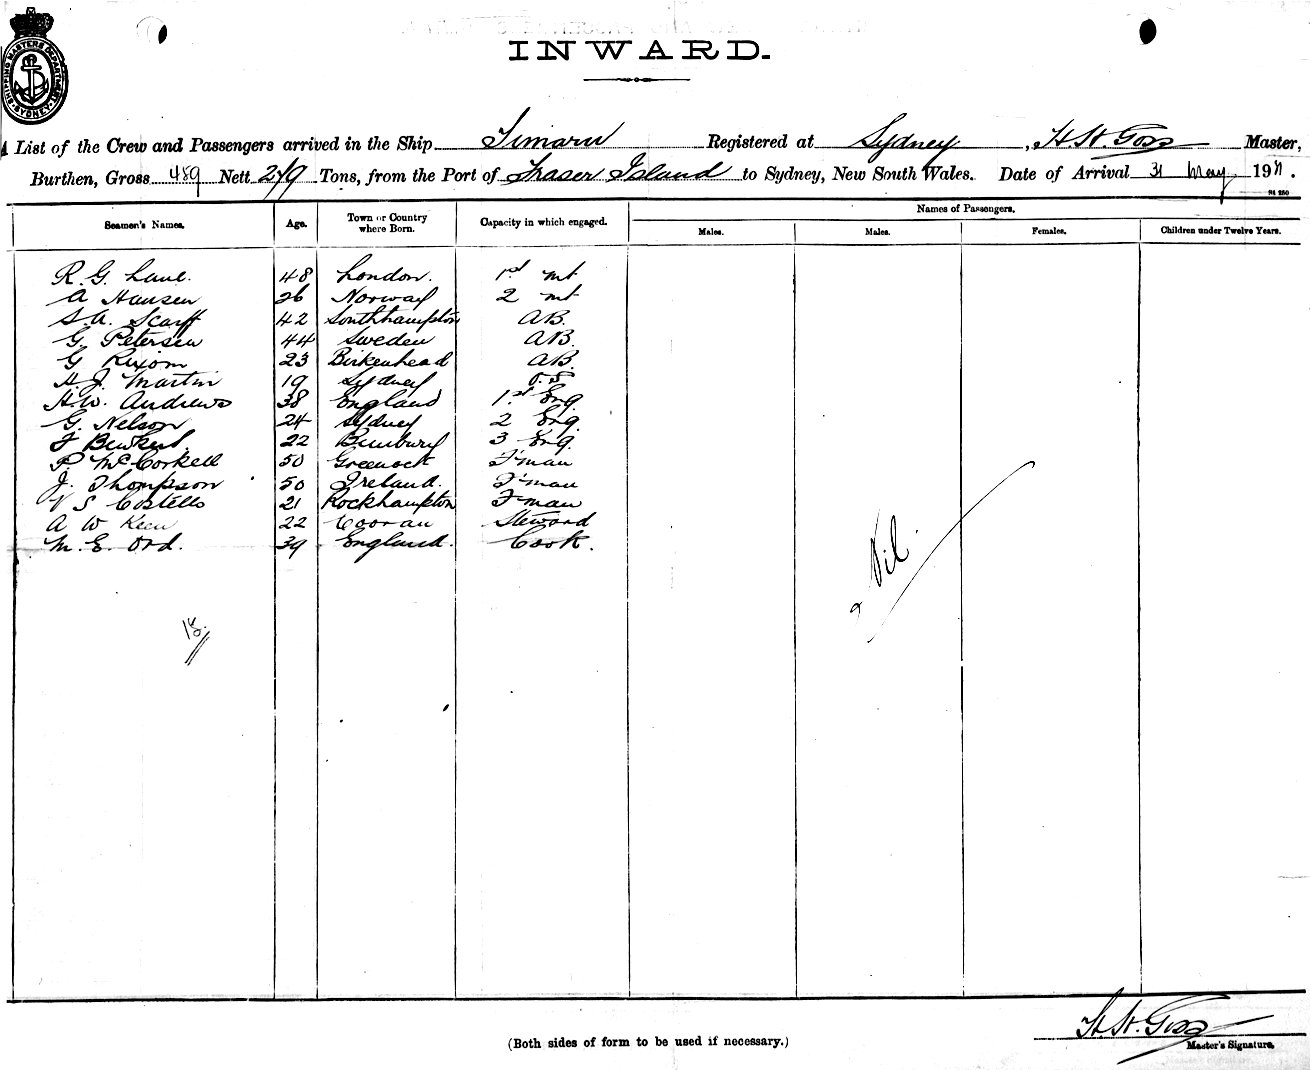 SHIPPING MASTERS DEPARTMENT SYDNEY
INWARD.
List of the Crew and Passengers arrived in the Ship Timaru Registered at Sydney, H. St. Goss Master,
Burthen, Gross 489 Nett 249 Tons, from the Port of Fraser Island to Sydney, New South Wales. Date of Arrival 31 May 1911.
Seamen's Names. Age. Town or Country where Born. Capacity in which engaged. Names of Passengers.
Males. Males. Females. Children under Twelve Years.
R. G. Lane. 48 London. 1st mt
A Hansen 26 Norway 2 mt
S. A. Scarff 42 Southhampton AB.
G. Petersen 44 Sweden AB.
G Rixom 23 Birkenhead AB.
H. J. Martin 19 Sydney O.S
H. W. Andrews 38 England 1st Eng
G. Nelson 24 Sydney 2 Eng.
F 22 Bunbury 3 Eng.
P. McCorkell 50 Greenock F'man
J. Thompson 50 Ireland. F'man
V S Costello 21 Rockhampton F'man
A W Keen 22 Cooran Steward
M. E. Ord. 39 England. Cook.
Nil.
H. St. Goss
Master's Signature.
(Both sides of form to be used if necessary.)